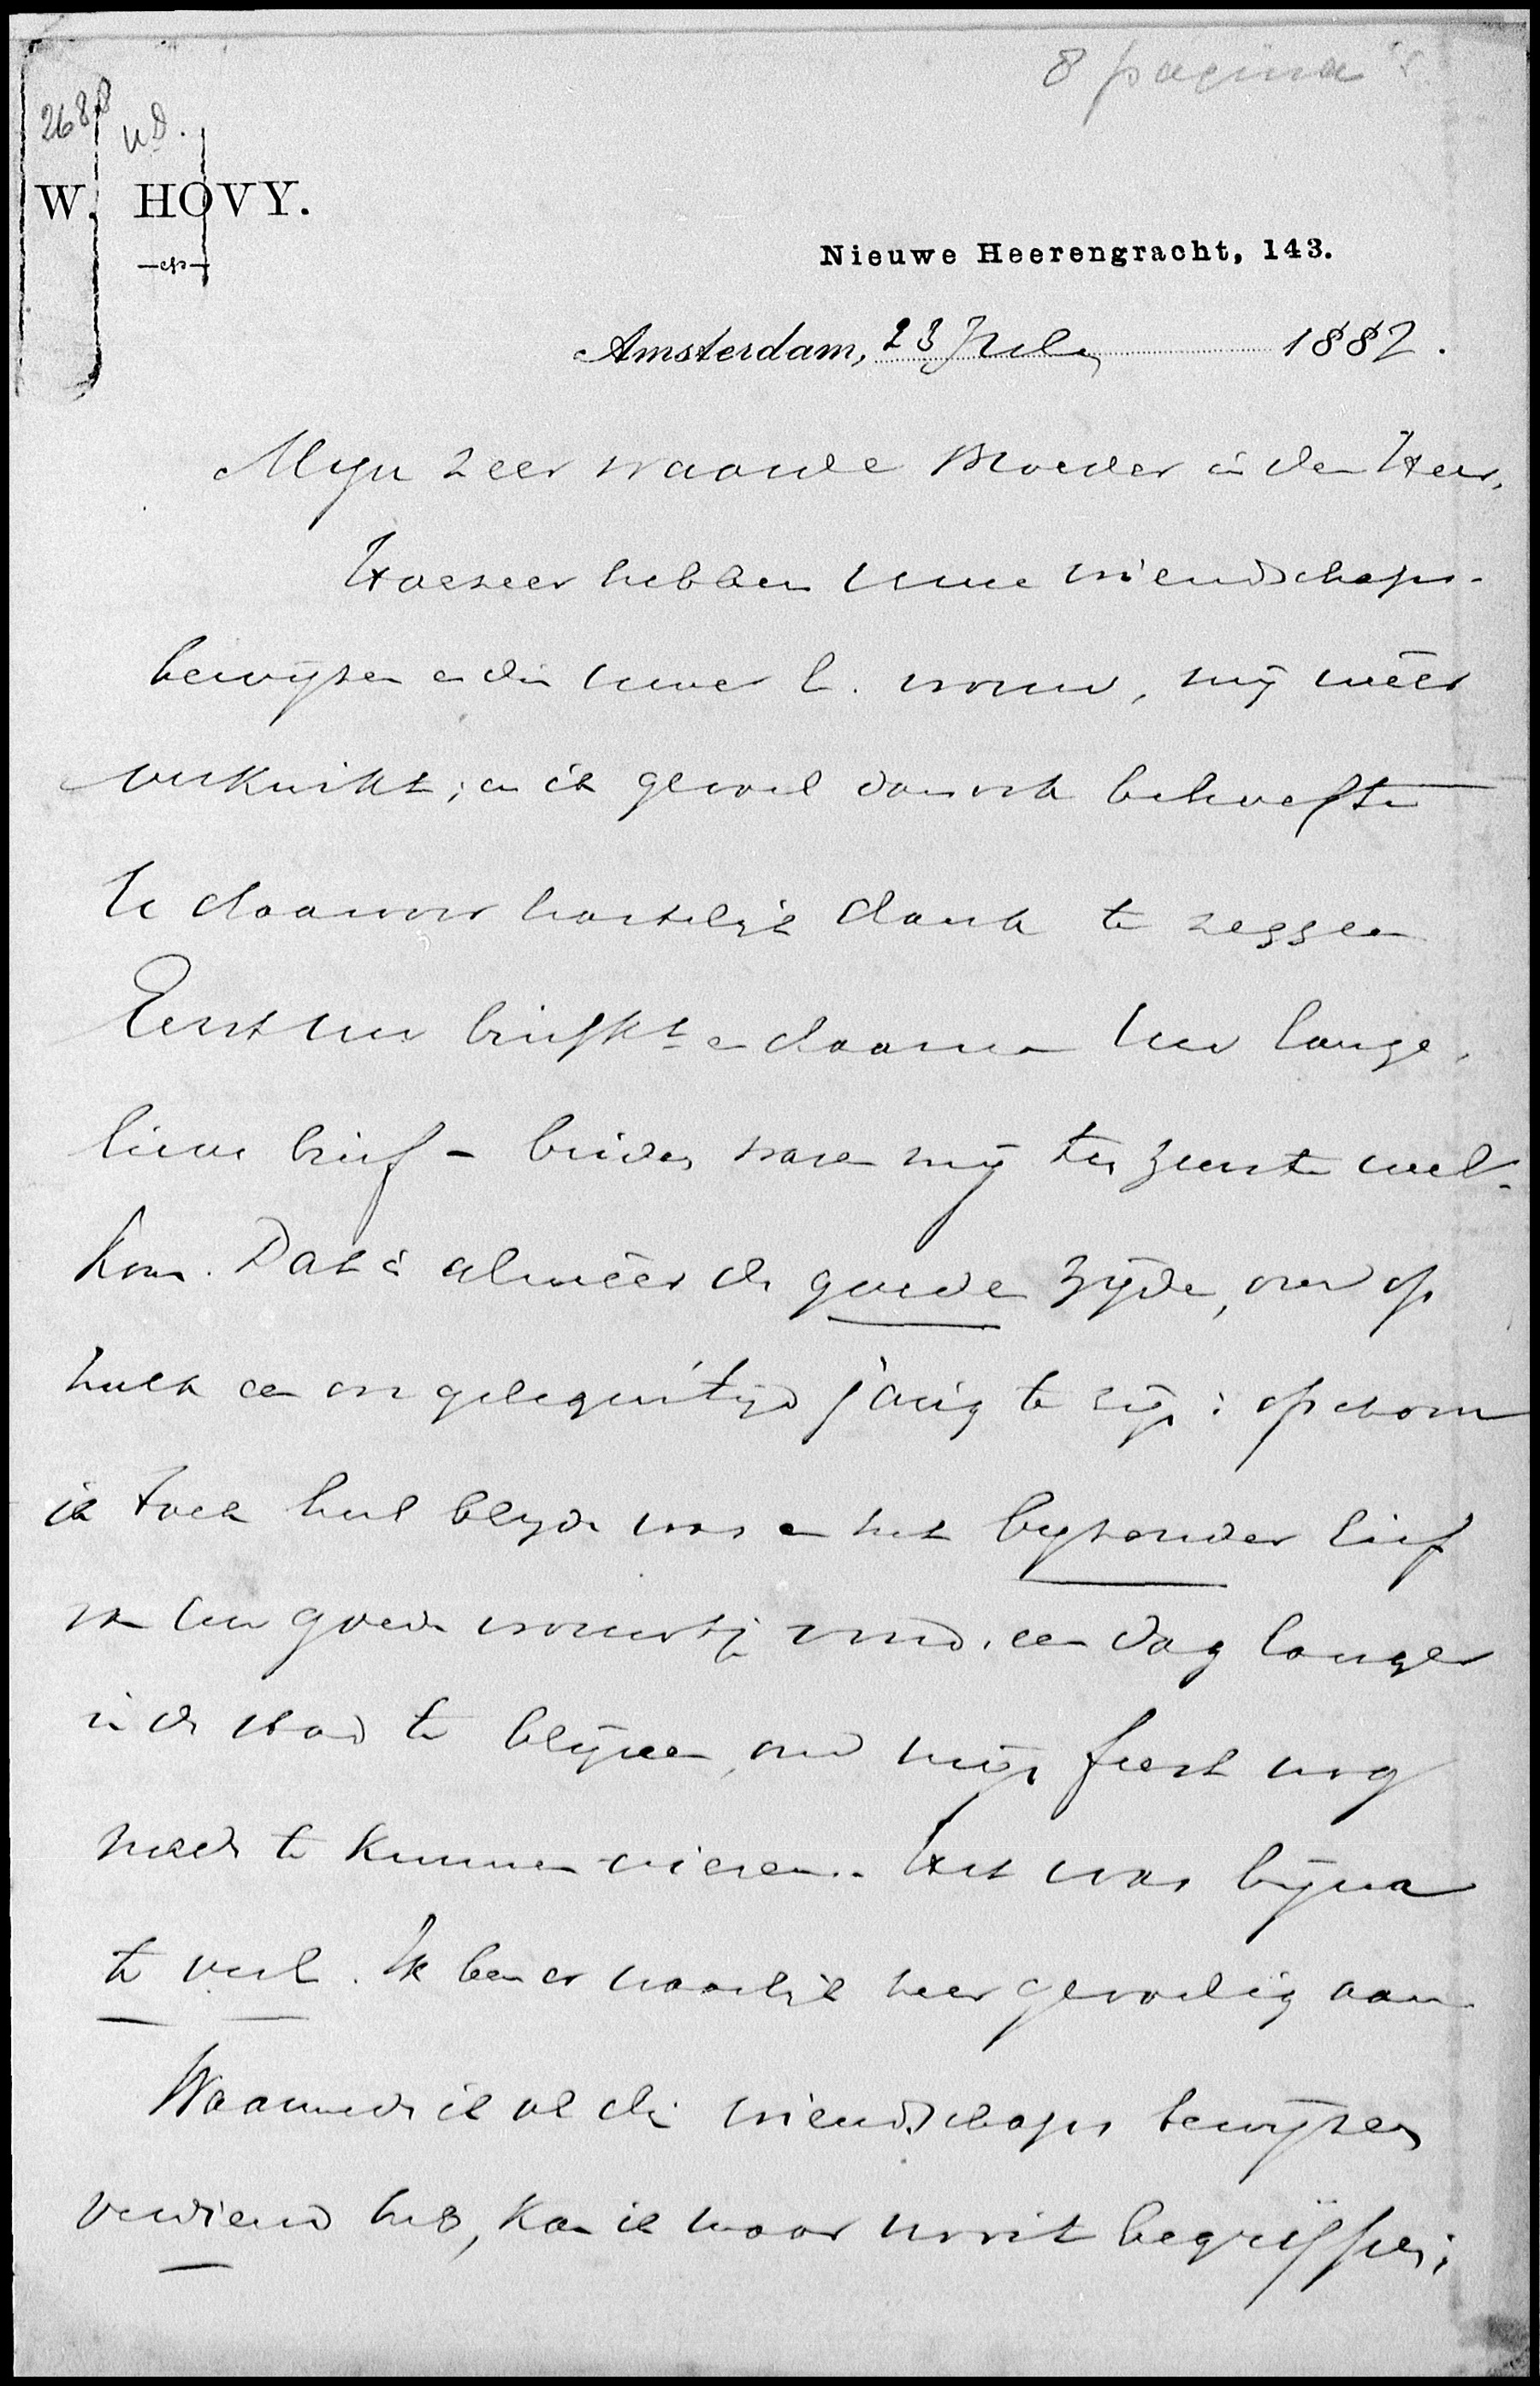 8 pagina's
2688
W. HOVY.
Nieuwe Heerengracht, 143.
Amsterdam, 23 July 1882.
Mijn zeer waarde Broeder in den Heer,
Hoezeer hebben uwe vriendschaps-
bewijzen en die uwer l. vrouw, mij wéér
verkwikt; en ik gevoel dan ook behoefte
U daarvoor hartelijk dank te zeggen
Eerst uw briefkt en daarna uw lange,
lieve brief - beiden waren mij ten zeerste wel-
kom. Dat is alweêr de goede zijde, van op
zulk een ongelegen tijd jarig te zijn: ofschoon
ik toch heel blijde was en het bijzonder lief
van uw goede vrouwtje vind, een dag langer
in de stad te blijven, om mijn feest nog
mede te kunnen vieren. Het was bijna
te veel. Ik ben er waarlijk zeer gevoelig aan
Waarmede ik al die vriendschaps bewijzen
verdiend heb, kan ik maar nooit begrijpen;